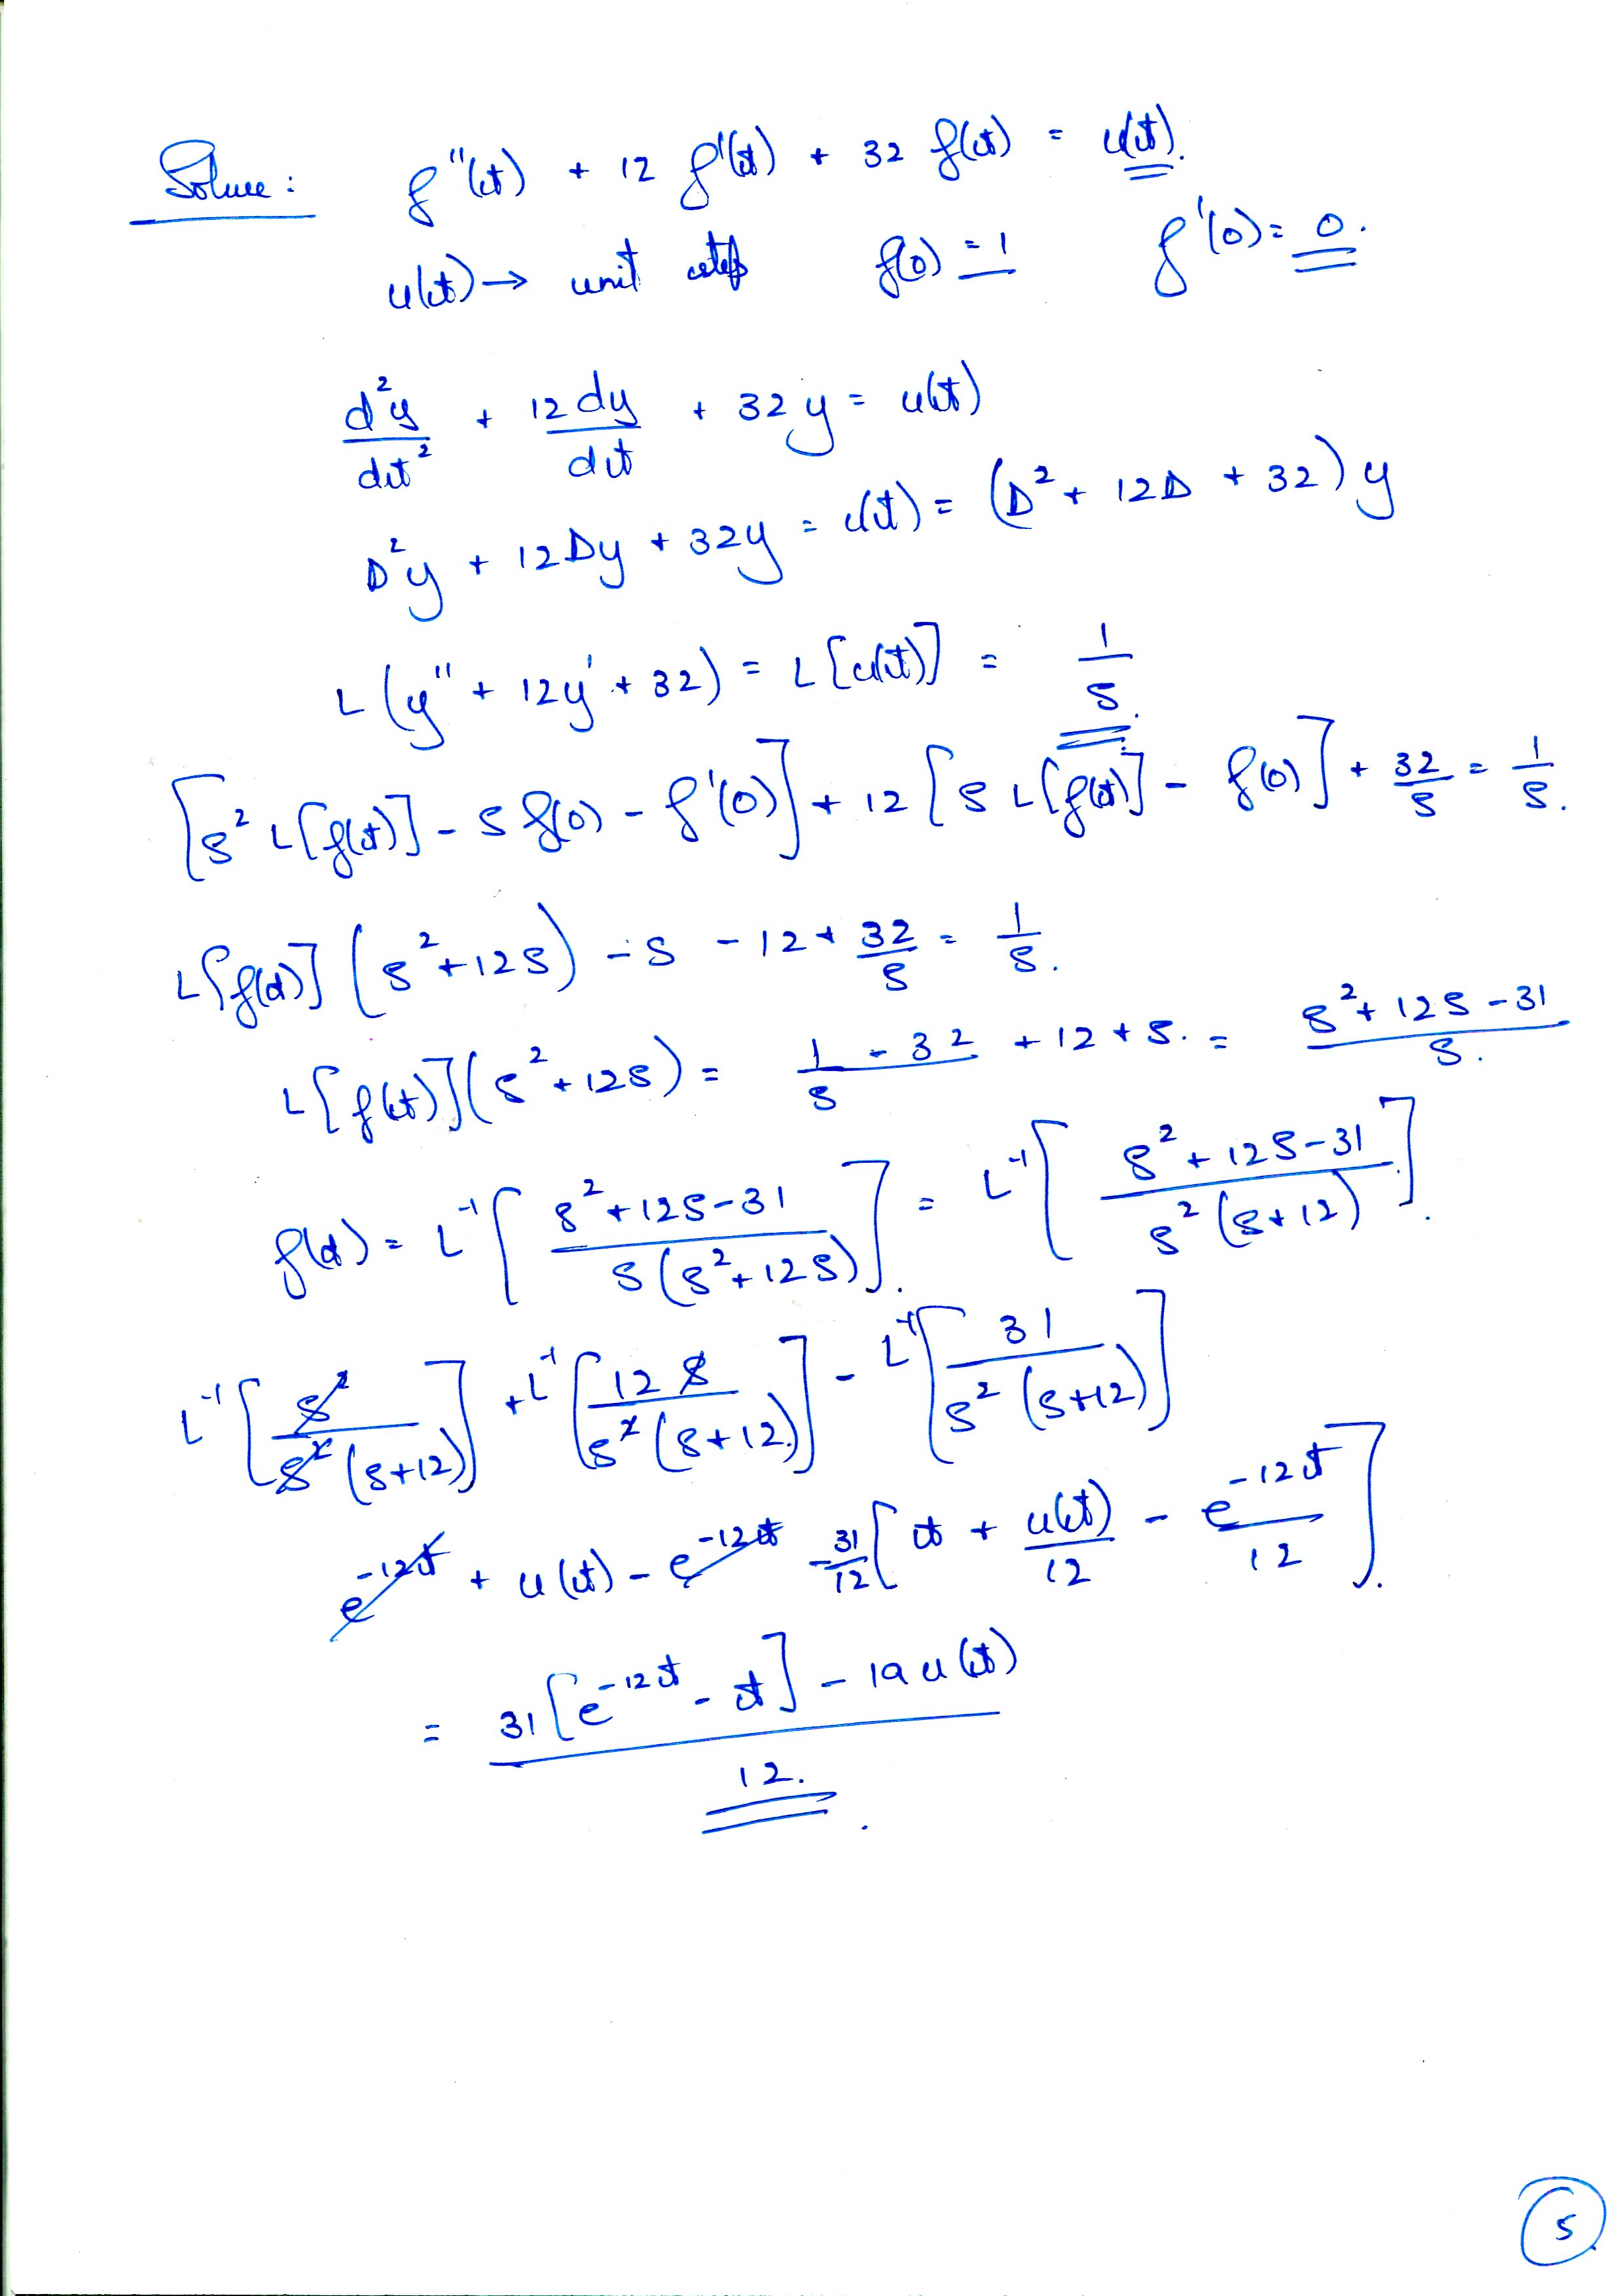 Solve: f''(t) + 12 f'(t) + 32 f(t) = u(t).
u(t) → unit step f(0) = 1 f'(0) = 0.
d²y/dt² + 12 dy/dt + 32y = u(t)
D²y + 12Dy + 32y = u(t) = (D² + 12D + 32) y
L (y'' + 12y' + 32) = L[u(t)] = 1/s.
[s² L[f(t)] - s f(0) - f'(0)] + 12 [s L[f(t)] - f(0)] + 32/s = 1/s.
L[f(t)] (s² + 12s) - s - 12 + 32/s = 1/s.
L[f(t)] (s² + 12s) = (1 - 32)/s + 12 + s. = (s² + 12s - 31)/s.
f(t) = L⁻¹[(s² + 12s - 31)/(s(s² + 12s))]. = L⁻¹[(s² + 12s - 31)/(s²(s + 12))].
L⁻¹[s²/(s²(s+12))] + L⁻¹[12s/(s²(s+12))] - L⁻¹[31/(s²(s+12))]
e^(-12t) + u(t) - e^(-12t) - 31/12 [t + u(t)/12 - e^(-12t)/12].
= (31[e^(-12t) - t] - 19u(t))/12.
5